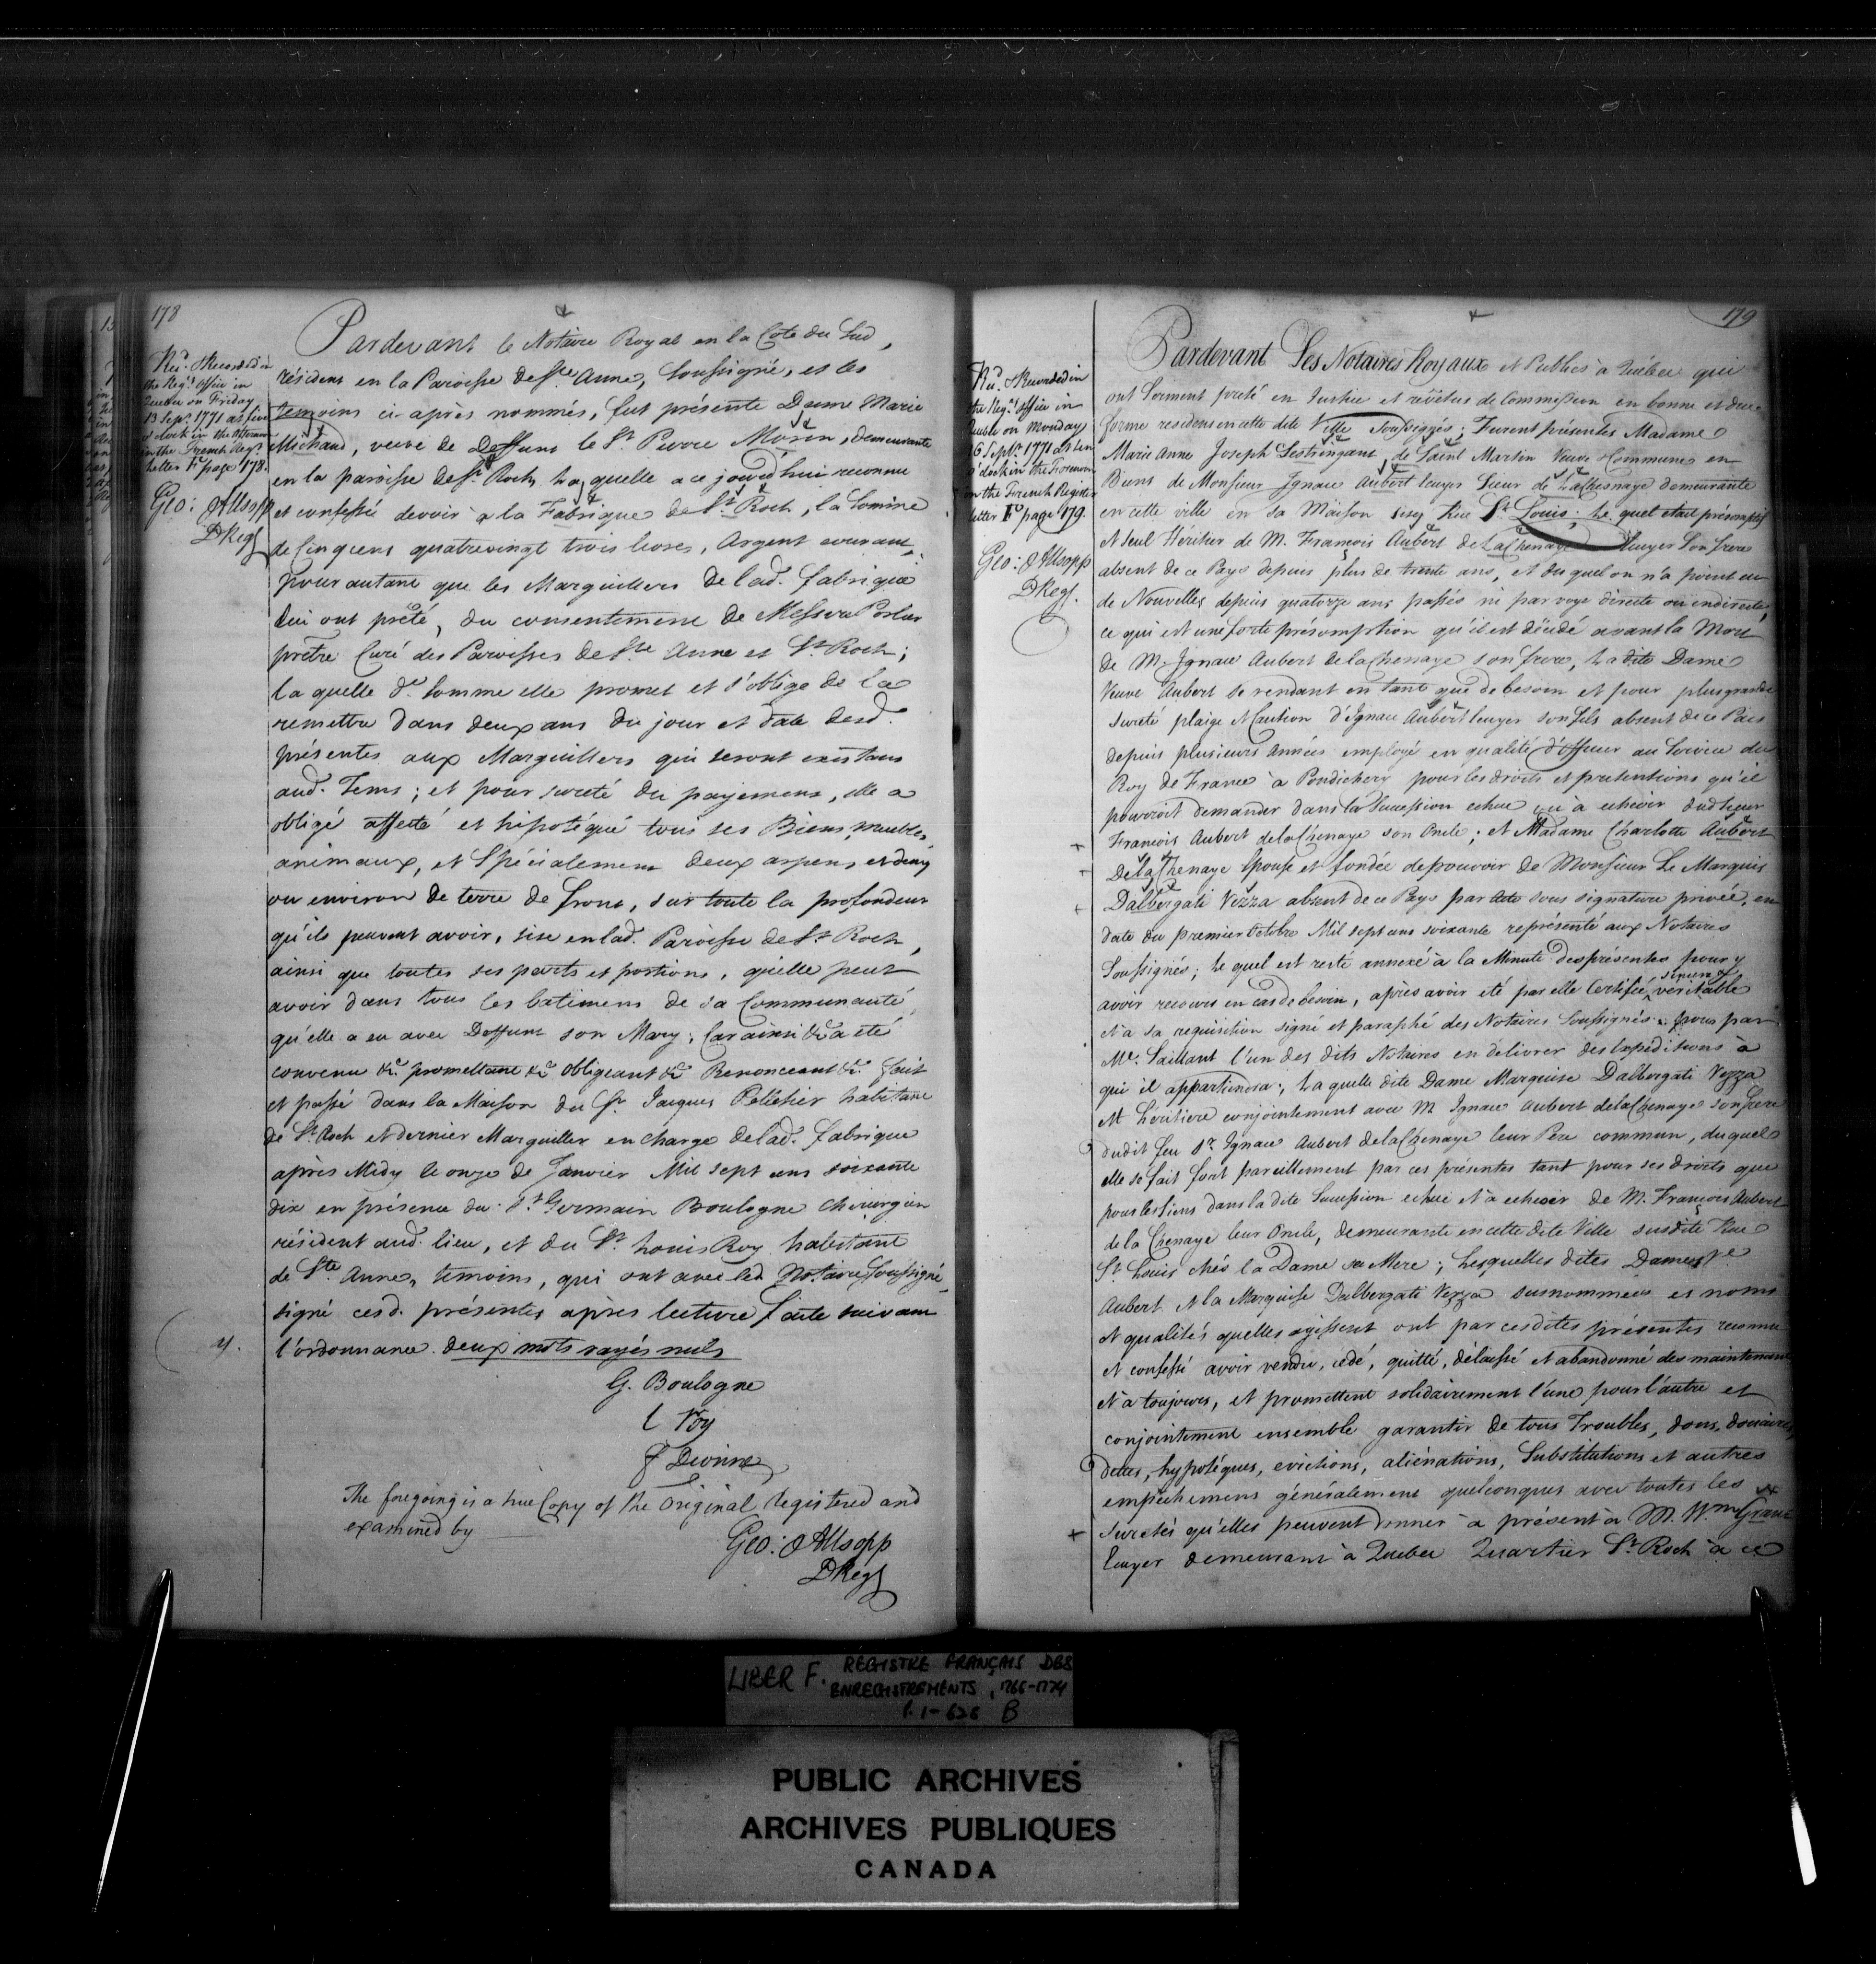 178
Rec.d & Recorded in
the Reg.rs Office in
Quebec on Friday
13 Sept. 1771 at five
o'clock in the afternoon
in the French Reg.r
Letter F. page 178.
Geo: Allsopp
DReg.
Pardevant le Notaire Royal en la Cote du Sud,
résident en la Paroisse de Ste. Anne, Soussigné, et les
temoins ci après nommés, fut présente Dame Marie
Michaud, veuve de Deffunt le Sr. Pierre Morin, demeurante
en la paroisse de St. Roch, Laquelle a ce jourd'hui reconnu
et confessé devoir a la Fabrique de St. Roch, la Somme
de Cinq cens quatrevingt trois livres, Argent courant,
pour autant que les Marguilliers de lad. fabrique
lui ont prêté, du consentement de Messire Porlier
prêtre Curé des Paroisses de Ste. Anne et St. Roch;
la quelle de. Somme elle promet et s'oblige de la
remettre dans deux ans du jour et date desd.
présentes aux Marguilliers qui seront existans
aud. Tems; et pour sureté du payement, elle a
obligé affecté et hipotéqué tous ses Biens, meubles,
animaux, et Spécialement deux arpens et demy
ou environ de terre de front, sur toute la profondeur
qu'ils peuvent avoir, sise en lad. Paroisse de St. Roch,
ainsi que toutes ses parts et portions, qu'elle peut
avoir dans tous les batimens de sa Communauté,
qu'elle a eu avec Deffunt son Mary; Car ainsi &c. a été
convenu &c. promettant &c. obligeant &c. Renonceant &c. fait
et passé dans la Maison du Sr. Jacques Pelletier habitant
de St. Roch et dernier Marguiller en charge de lad. fabrique
après Midy le onze de Janvier Mil sept cens soixante
dix en présence du Sr. Germain Boulogne Chirurgien
résident aud. lieu, et du Sr. Louis Roy habitant
de Ste. Anne, temoins, qui ont avec led Notaire Soussigné,
signé cesd. présentes après lecture faite suivant
l'ordonnance. deux mots rayés nuls
G. Boulogne
L Roy
J Dionne
The foregoing is a true Copy of the Original Registered and
examined by
Geo: Allsopp
DReg.
179
Rec.d & Recorded in
the Reg.rs Office in
Quebec on Monday
16 Sept.r 1771 at ten
o'clock in the Forenoon
in the French Register
Letter F. page 179.
Geo: Allsopp
DReg.
Pardevant Les Notaires Royaux et Publics à Québec qui
ont Serment preté en Justice et revêtus de Commission en bonne et due
forme residens en cette dite Ville Soussignés; Furent présentes Madame
Marie Anne Joseph Lestringant de Saint Martin Veuve & Commune en
Biens de Monsieur Ignace Aubert Ecuyer Sieur de LaChesnaye demeurante
en cette ville en sa Maison sise Rue St. Louis; Le quel etait présomptif
et seul Héritier de M. François Aubert de LaChenaye Ecuyer Son frere
absent de ce Pays depuis plus de trente ans, et du quel on n'a point eu
de Nouvelles depuis quatorze ans passés ni par voye directe ou indirecte,
ce qui est une forte présomption qu'il est décédé avant la Mort
de M. Ignace Aubert de laChenaye son frere, Ladite Dame
Veuve Aubert se rendant en tant que de besoin et pour plus grande
sureté pleige et Caution d'Ignace Aubert Ecuyer son fils absent de ce Païs
depuis plusieurs Années employé en qualité d'Officier au Service du
Roy de France à Pondichery pour les droits et pretentions qu'il
pourroit demander dans la Succession echue ou à echeoir dud Sieur
François Aubert de laChenaye son Oncle; et Madame Charlotte Aubert
De la Chenaye Epouse et fondée de pouvoir de Monsieur Le Marquis
Dalbergati Vezza absent de ce Pays par Acte sous signature privée, en
date du premier Octobre Mil sept cens soixante représenté aux Notaires
Soussignés; Le quel est resté annexé à la Minute des présentes pour y
avoir recours en cas de besoin, après avoir été par elle Certifié sincere & véritable
et a sa requisition signé et paraphé des Notaires Soussignés pour par
Me. Saillant l'un des dits Notaires en délivrer des Expéditions à
qui il appartiendra; La quelle dite Dame Marquise Dalbergati Vezza
est héritiere conjointement avec M. Ignace Aubert de laChenaye son frere
dudit feu Sr. Ignace Aubert de laChenaye leur Pere commun, duquel
elle se fait fort pareillement par ces présentes tant pour ses droits que
pour les siens dans la dite Succession echue et à echeoir de M. François Aubert
de la Chenaye leur Oncle, demeurante en cette dite Ville susdite Rue
St. Louis chés la Dame sa Mere; Lesquelles dites Dames Ve.
Aubert et la Marquise Dalbergati Vezza susnommées es noms
et qualités quelles agissent ont par ces dites présentes reconnu
et confessé avoir vendu, cédé, quitté, délaissé et abandonné des maintenant
et a toujours, et promettent solidairement l'une pour l'autre et
conjointement ensemble garantir de tous Troubles, dons, douaires,
dettes, hypotéques, evictions, aliénations, Substitutions et autres
empêchemens généralement quelconques avec toutes les
suretés qu'elles peuvent donner à présent à M. Wm. Grant
Ecuyer demeurant à Quebec Quartier St. Roch à ce
LIBER F. REGISTRE FRANÇAIS DES
ENREGISTREMENTS, 1766-1774
P. 1-626 B
PUBLIC ARCHIVES
ARCHIVES PUBLIQUES
CANADA